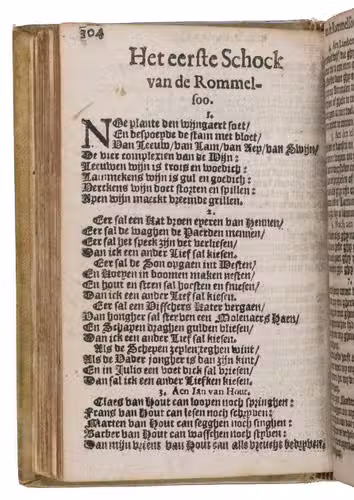 304
Het eerste Schock
van de Rommel-
soo.
1.
NOe plante den wijngaert soet/
En bespoeyde de stam met bloet/
Van Leeuw/van Lam/van Aep/van Swijn/
De vier complexien van de Wijn:
Leeuwen wijn is trots en woedich:
Lammekens wijn is gul en goedich:
Verckens wijn doet storten en spillen:
Apen wijn maeckt vreemde grillen.
2.
Eer sal een Kat broen eyeren van Hennen/
Eer sal de waghen de Paerden mennen/
Eer sal het speck zijn vet verliesen/
Dan ick een ander Lief sal kiesen.
Eer sal de Son opgaen int Westen/
En Koeyen in boomen maken nesten/
En hout en steen sal hoesten en fniesen/
Dan ick een ander Lief sal kiesen.
Eer sal een Visschers Kater vergaen/
Van hongher sal sterven een Molenaers Haen/
En Schapen draghen gulden vliesen/
Dan ick een ander Lief sal kiesen.
Als de Schepen zeylen zeghen wint/
Als de Vader jongher is dan zijn kint/
En in Julio een voet dick sal vriesen/
Dan sal ick een ander Liefken kiesen.
3. Aen Jan van Hout.
Claes van Hout can loopen noch springhen:
Frans van Hout can lesen noch schryven:
Marten van Hout can segghen noch singhen:
Barber van Hout can wasschen noch styven:
Dan mijn vrient van Hout can alle vreucht bedryven.